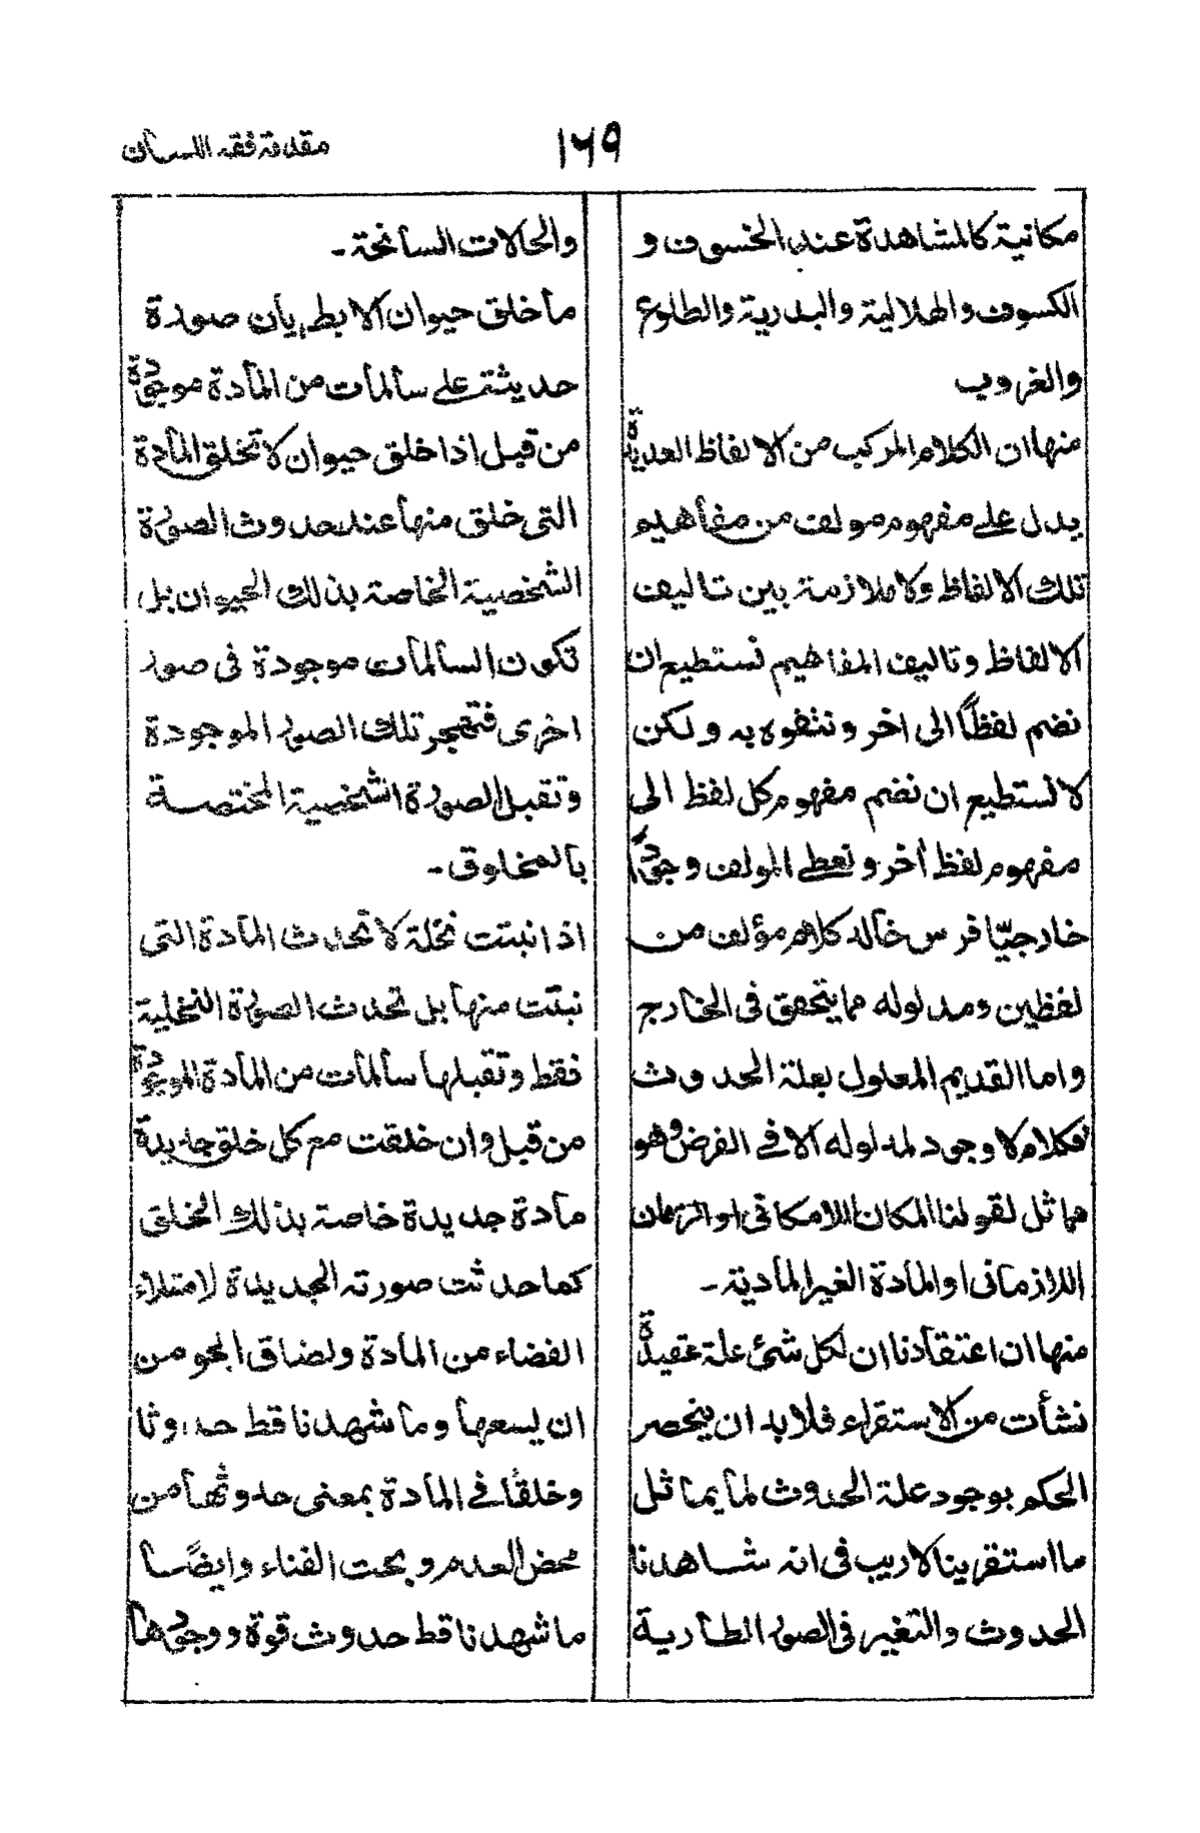 مقدمة فقه اللسان
١٦٩
مكانية كالمشاهدة عند الخسوف و
الكسوف والهلالية والبدرية والطلوع
والغروب
منها ان الكلام المركب من الالفاظ العديدة
يدل على مفهوم مولف من مفاهيم
تلك الالفاظ ولا ملازمة بين تاليف
الالفاظ وتاليف المفاهيم نستطيع ان
نضم لفظاً الى اخر ونتفوه به ولكن
لا نستطيع ان نضم مفهوم كل لفظ الى
مفهوم لفظ أخر ونعطى المولف وجودًا
خارجيّا فرس خاله كلام مؤلف من
لفظين ومدلوله مما يتحقق فى الخارج
واما القديم المعلول بعلة الحدوث
فكلام لا وجود لمدلوله الا فى الفرض وهو
مماثل لقولنا المكان اللامكانى او الزمان
اللازمانى او المادة الغير المادية ـ
منها ان اعتقادنا ان لكل شئ علة عقيدة
نشأت من الاستقراء فلابد ان ينحصر
الحكم بوجود علة الحدوث لما يماثل
ما استقرينا لا ريب فى انه شاهدنا
الحدوث والتغير فى الصور الطارية
والحالات السانحة ـ
ما خلق حيوان الا بطريان صورة
حديثة على سالمات من المادة موجودة
من قبل اذا خلق حيوان لا تخلق المادة
التى خلق منها عند حدوث الصورة
الشخصية الخاصة بذلك الحيوان بل
تكون السالمات موجودة فى صور
اخرى فتهجر تلك الصور الموجودة
وتقبل الصورة الشخصية المختصة
بالمخلوق ـ
اذا نبتت نخلة لا تحدث المادة التى
نبتت منها بل تحدث الصورة النخلية
فقط وتقبلها سالمات من المادة الموجودة
من قبل وان خلقت مع كل خلق جديدة
مادة جديدة خاصة بذلك الخلق
كما حدثت صورته الجديدة لامتلاء
الفضاء من المادة ولضاق الجو من
ان يسعها وما شهدنا قط حدوثا
وخلقًا فى المادة بمعنى حدوثها من
محض العدم وبحت الفناء وايضًا
ما شهدنا قط حدوث قوة ووجودها